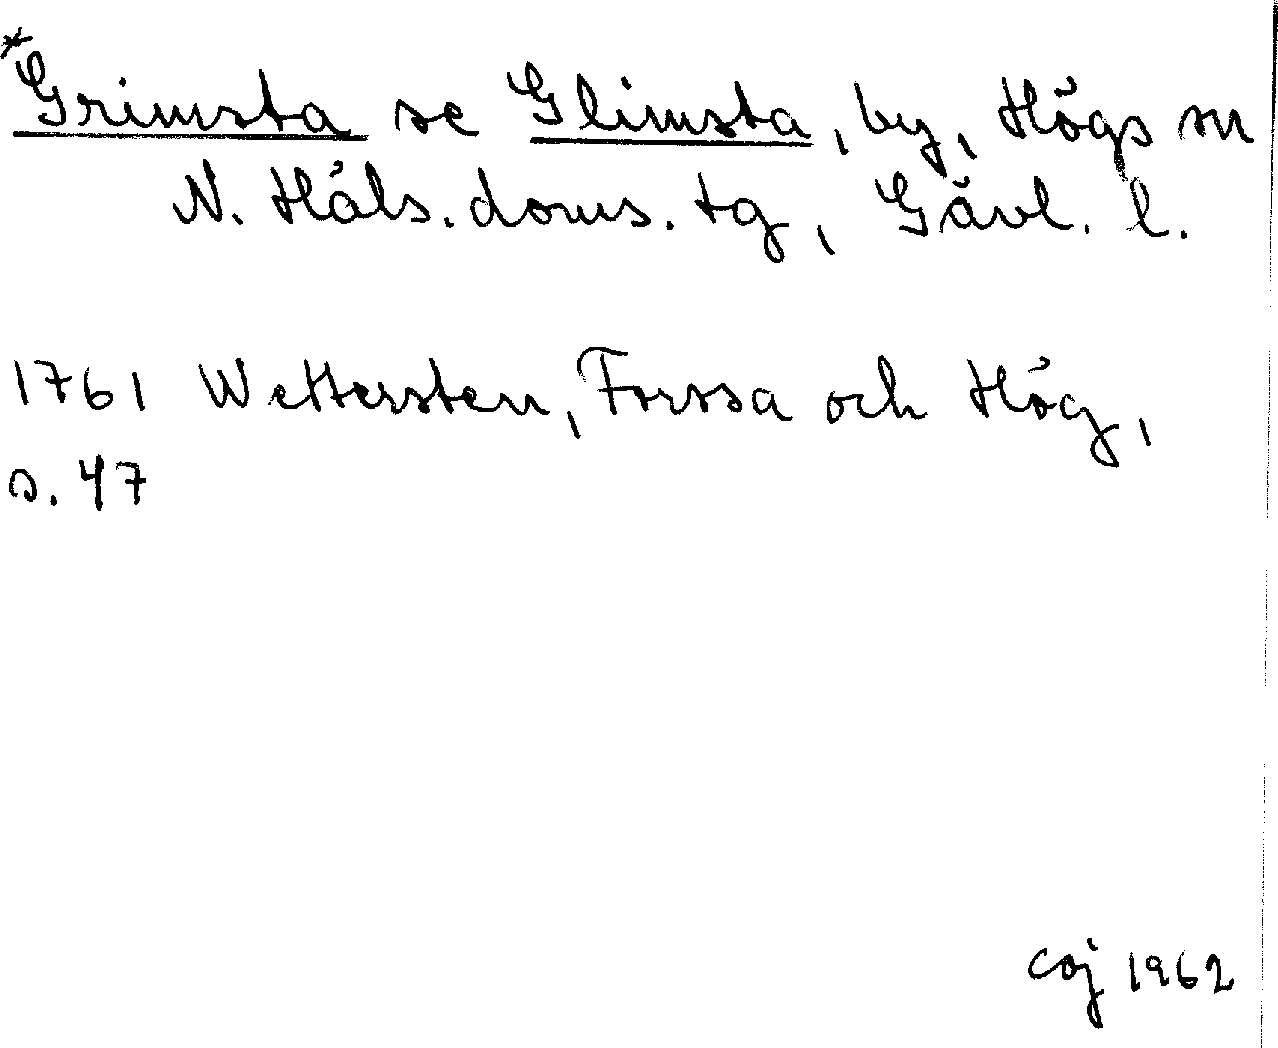 *Grimsta se Glimsta, by, Högs sn
N. Häls. doms. tg, Gävl. l.
1761 Wettersten, Forssa och Hög,
s. 47
coj 1962